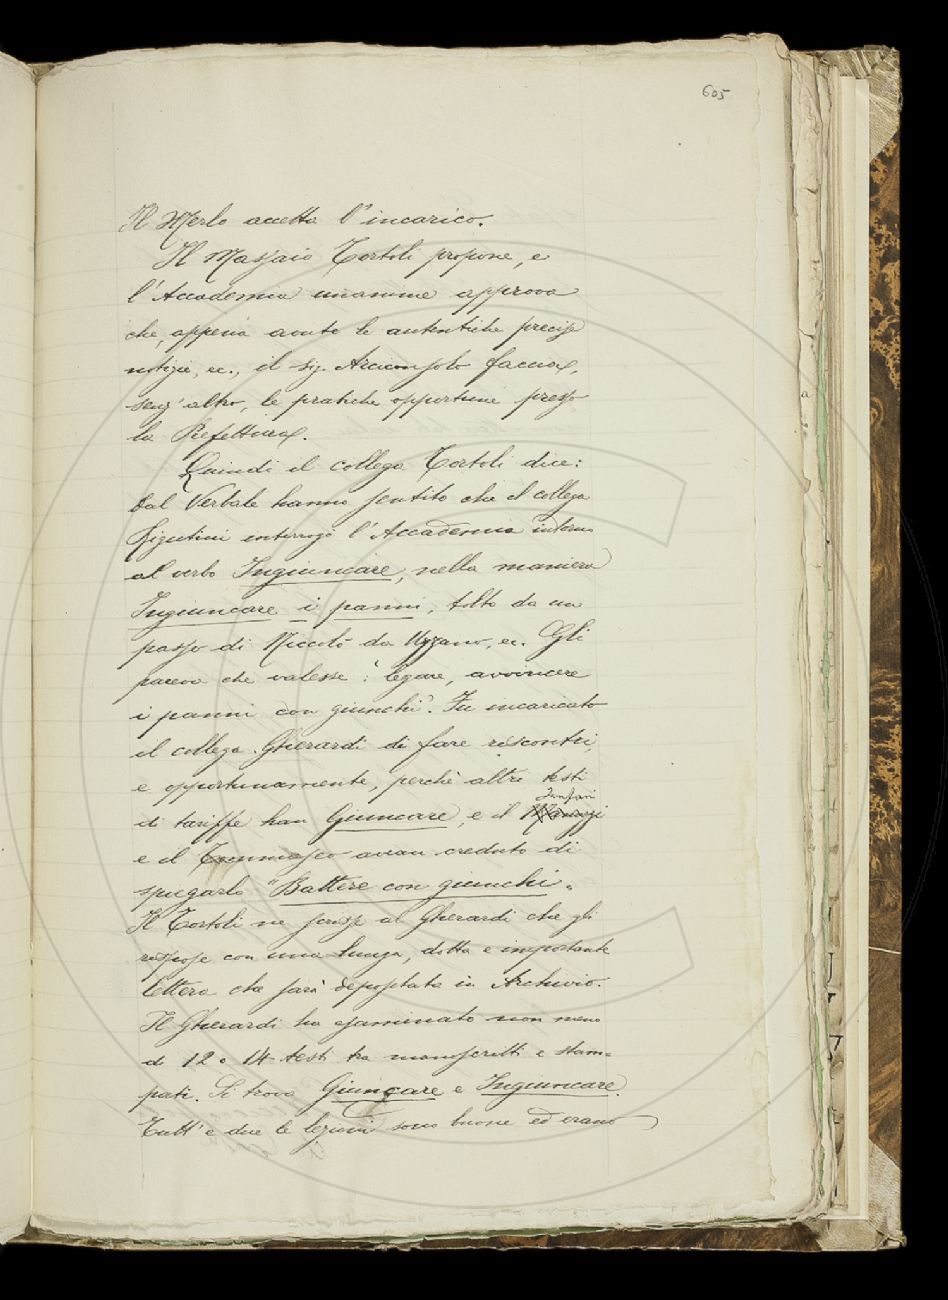 605
Il Merlo accetta l'incarico.
Il Massaio Tortoli propone, e
l'Accademia unanime approva
che, appena avute le autentiche precise
notizie, ec., il sig. Arciconsolo faccia,
senz'altro, le pratiche opportune presso
la Prefettura.
Quindi il collega Tortoli dice:
Dal Verbale hanno sentito che il collega
Rigutini interrogò l'Accademia intorno
al verbo Ingiuncare, nella maniera
Ingiuncare i panni, tolto da un
passo di Niccolò da Uzzano, ec. Gli
pareva che valesse: "legare, avvincere
i panni con giunchi". Fu incaricato
il collega Gherardi di fare riscontri,
e opportunamente, perchè altri testi
di tariffe han Giuncare, e il Fanfani
e il Tommaseo avean creduto di
spiegarlo "Battere con giunchi".
Il Tortoli ne scrisse al Gherardi che gli
rispose con una lunga, dotta e importante
lettera che sarà depositata in Archivio.
Il Gherardi ha esaminato non meno
di 12 o 14 testi tra manoscritti e stam-
pati. Si trova Giuncare e Ingiuncare.
Tutt'e due le lezioni sono buone ed erano